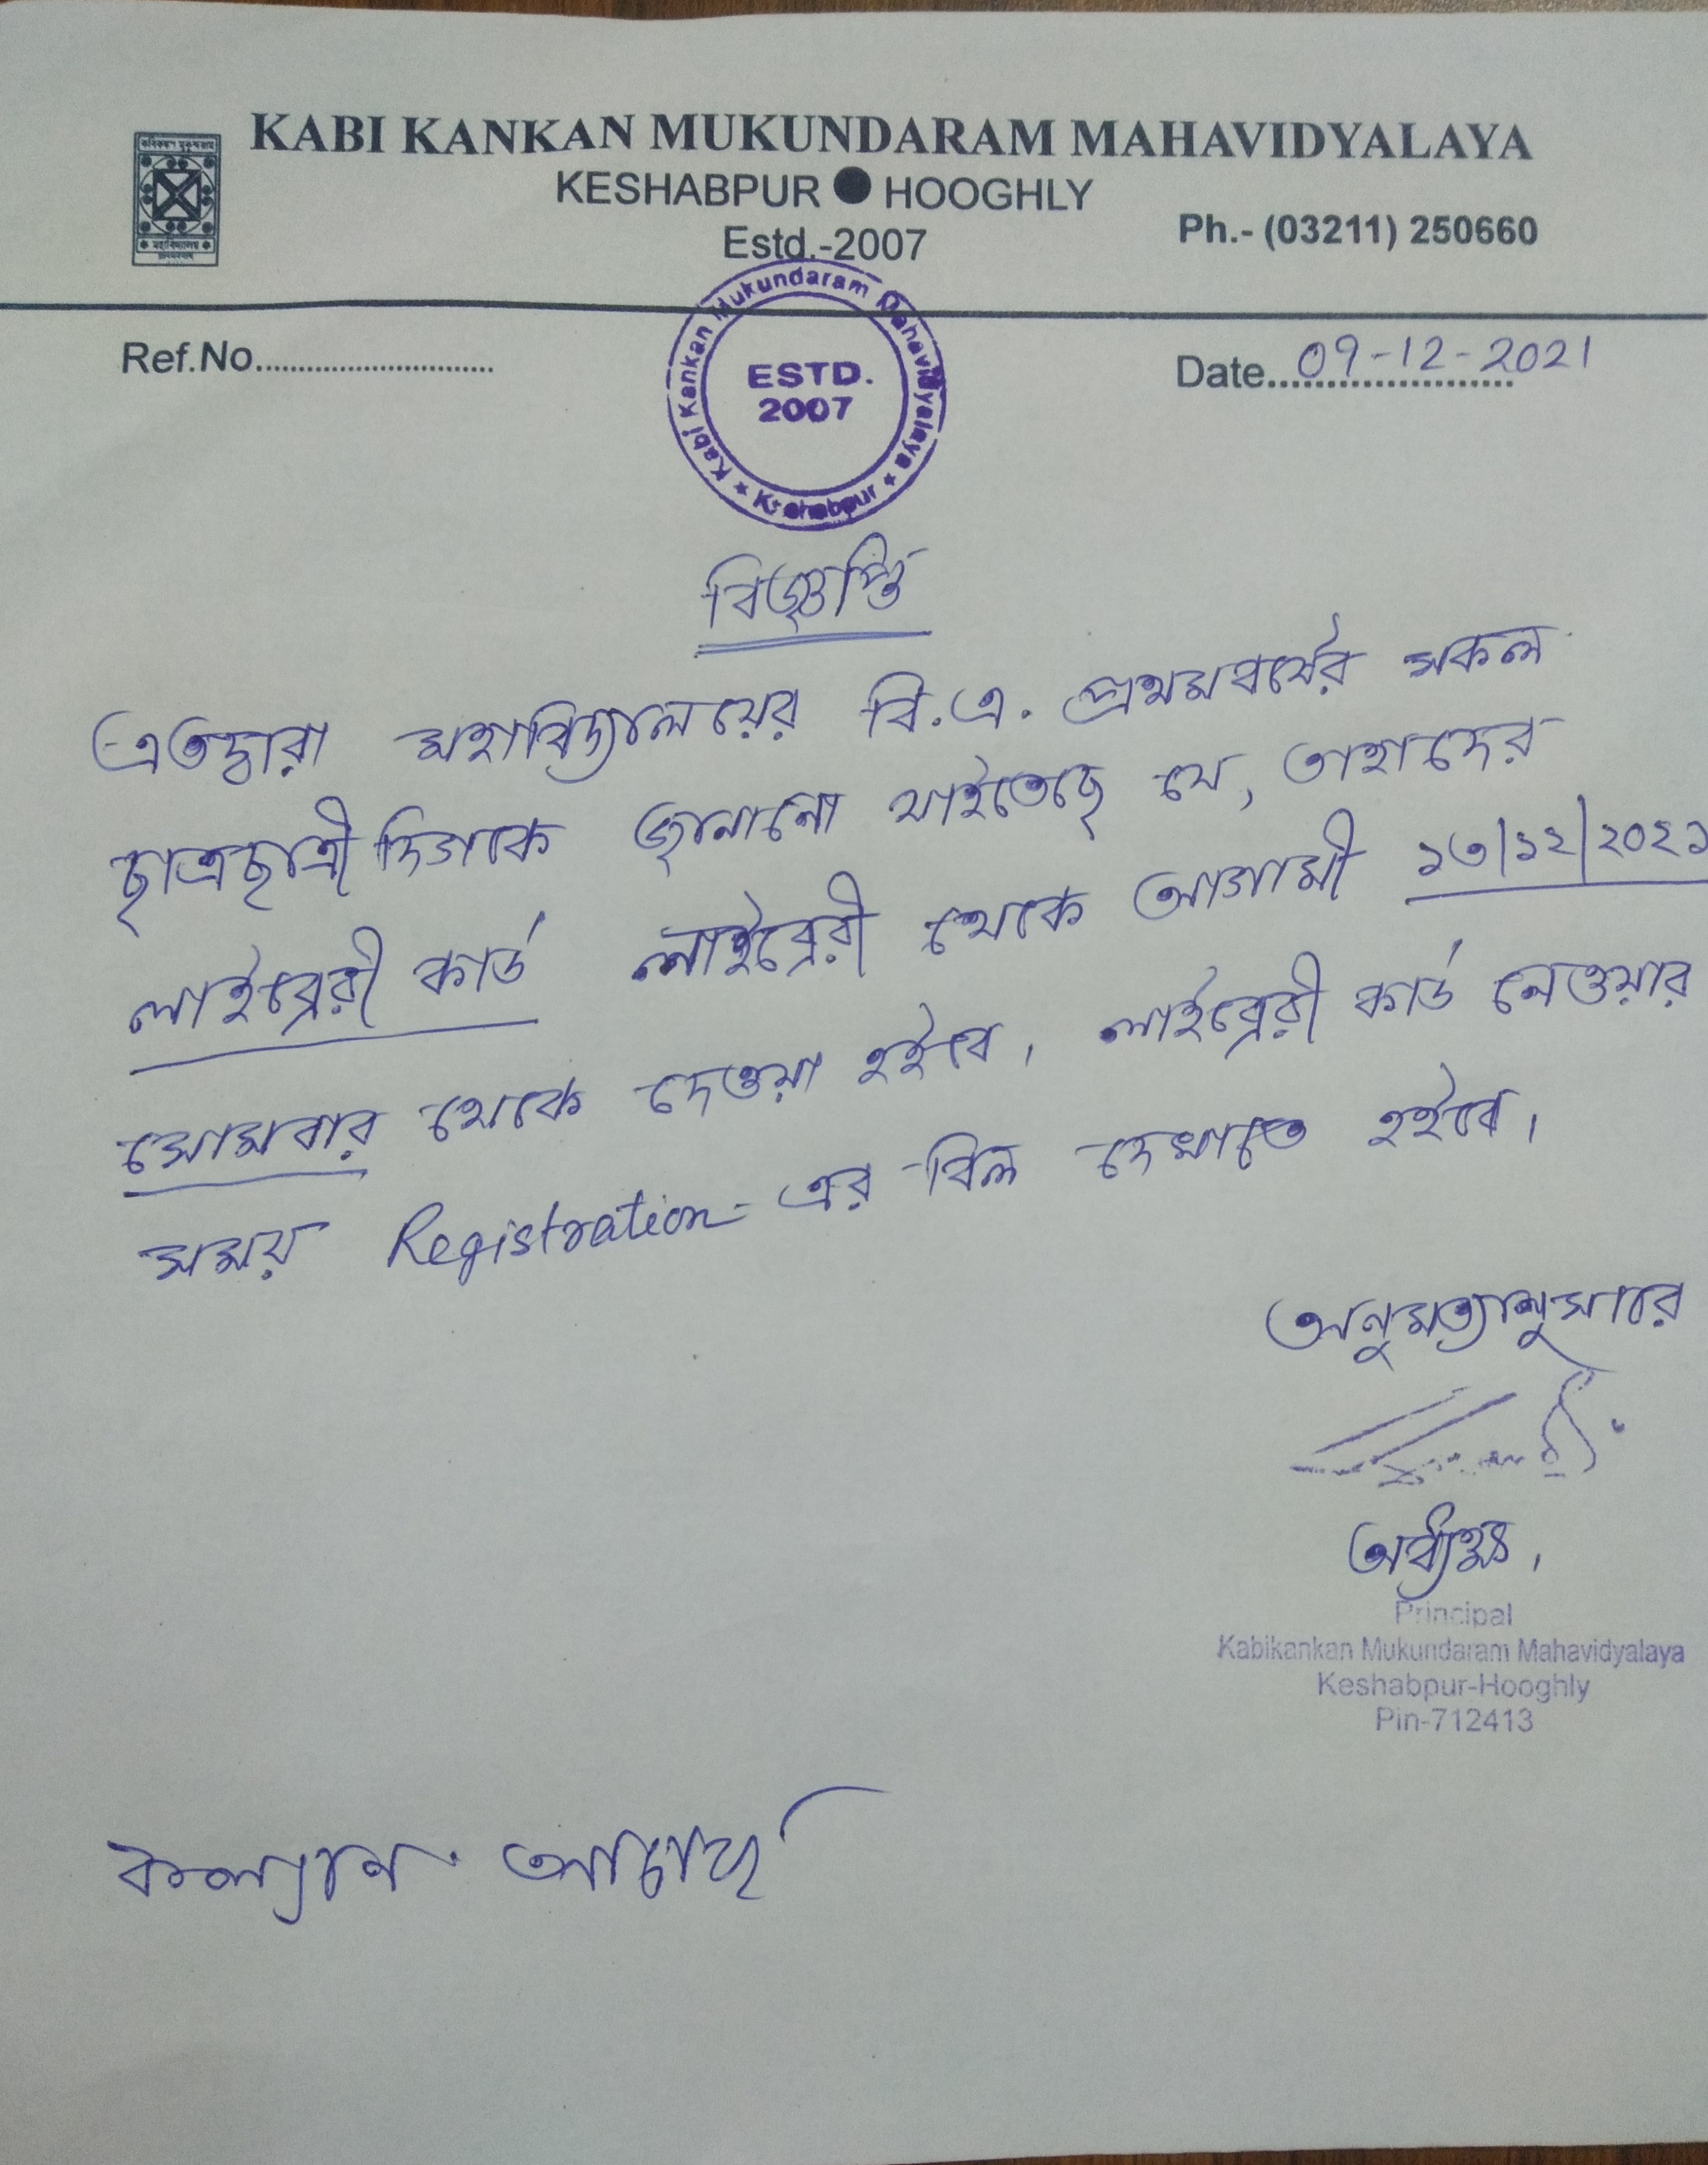 KABI KANKAN MUKUNDARAM MAHAVIDYALAYA
KESHABPUR ● HOOGHLY
Estd.-2007
Ph.- (03211) 250660
মহাবিদ্যালয়
Ref.No...........................
Date....09-12-2021
Kabi Kankan Mukundaram Mahavidyalaya
ESTD.
2007
★ Keshabpur ★
বিজ্ঞপ্তি
এতদ্বারা মহাবিদ্যালয়ের বি.এ. প্রথমবর্ষের সকল
ছাত্রছাত্রীদিগকে জানানো যাইতেছে যে, তাহাদের
লাইব্রেরী কার্ড লাইব্রেরী থেকে আগামী ১৩/১২/২০২১
সোমবার থেকে দেওয়া হইবে। লাইব্রেরী কার্ড নেওয়ার
সময় Registration-এর বিল দেখাতে হইবে।
অনুমত্যানুসারে
অধ্যক্ষ,
Principal
Kabikankan Mukundaram Mahavidyalaya
Keshabpur-Hooghly
Pin-712413
কল্যান আচার্য